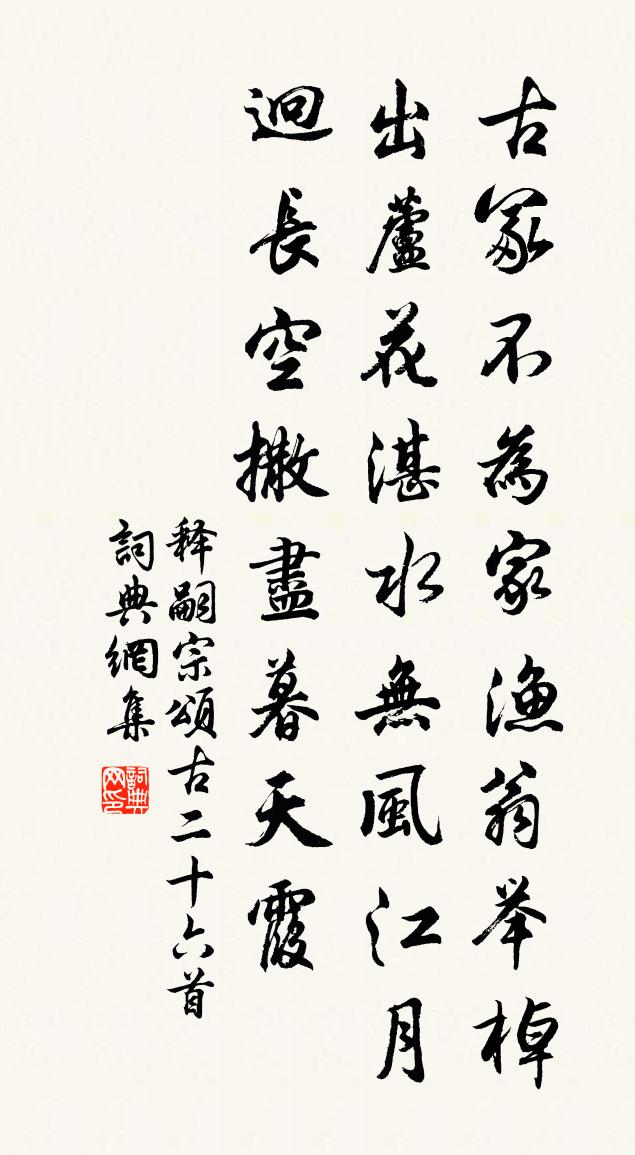 古冢不為家漁翁举棹
出蘆花湛水無風江月
迥長空撒盡暮天霞
释嗣宗頌古二十六首
詞典網集
詞典网印